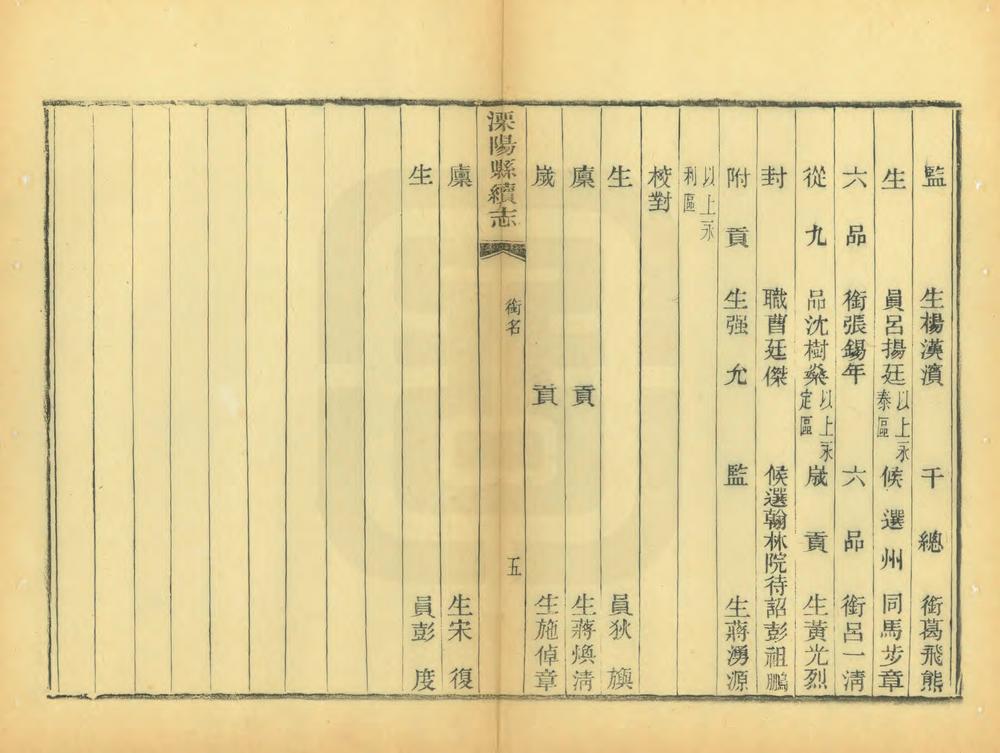 監生楊漢濱 千總銜葛飛熊
生員呂揚廷以上永泰區 候選州同馬步章
六品銜張錫年 六品銜呂一清
從九品沈樹燊以上永定區 歲貢生黃光烈
封職曹廷傑 候選翰林院待詔彭祖鵬
附貢生强允 監生蔣湧源
以上永利區
校對
生員狄旟
廩貢生蔣煥清
歲貢生施倬章
溧陽縣續志 銜名 五
廩生宋復
生員彭度